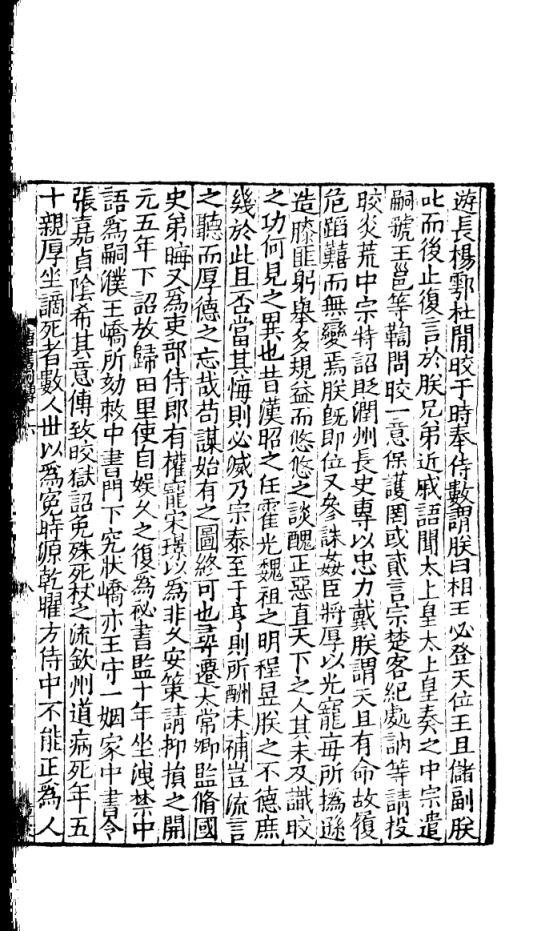 遊長楊鄠杜間晈于時奉侍數謂朕曰相王必登天位王且儲副朕
叱而後止復言於朕兄弟近戚語聞太上皇太上皇奏之中宗遣
嗣虢王邕等鞫問晈一意保護罔或貳言宗楚客紀處訥等請投
晈炎荒中宗特詔貶潤州長史專以忠力戴朕謂天且有命故履
危蹈囏而無變焉朕旣即位又參誅姦臣將厚以光寵每所撝遜
造膝匪躬舉多規益而悠悠之談醜正惡直天下之人其未及識晈
之功何見之異也昔漢昭之任霍光魏祖之明程昱朕之不德庶
幾於此且否當其悔則必滅乃宗泰至于亨則所酬未補豈流言
之聽而厚德之忘哉苟謀始有之圖終可也尋遷太常卿監脩國
史弟晦又為吏部侍郎有權寵宋璟以為非久安策請抑損之開
元五年下詔放歸田里使自娛久之復為祕書監十年坐洩禁中
語為嗣濮王嶠所劾敕中書門下究狀嶠亦王守一姻家中書令
張嘉貞陰希其意傅致晈獄詔免殊死杖之流欽州道病死年五
十親厚坐謫死者數人世以為冤時源乾曜方侍中不能正為人